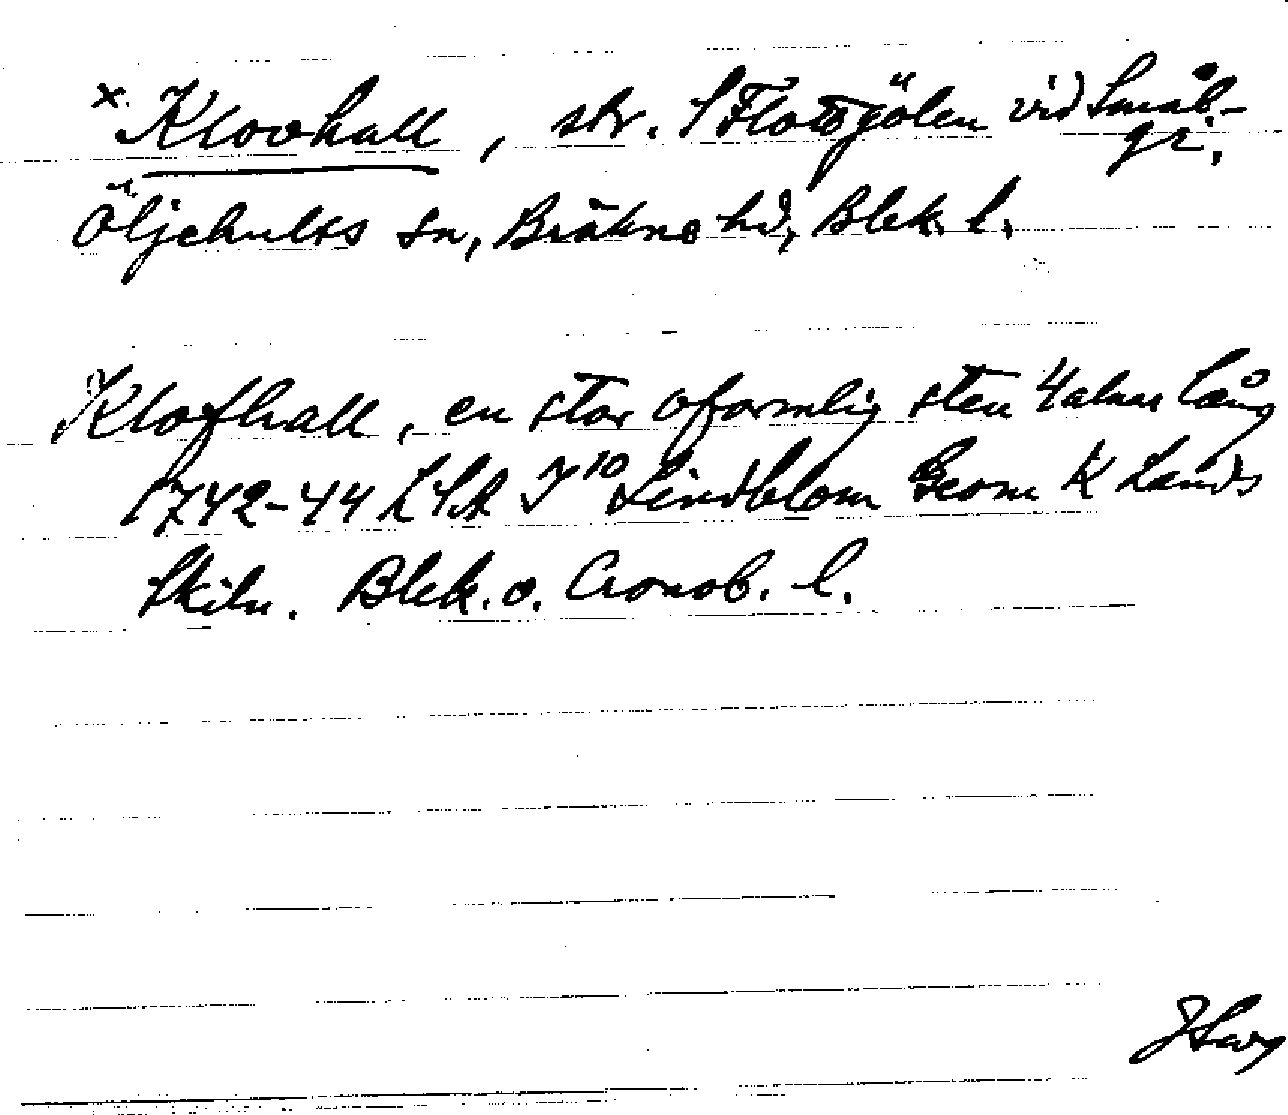 x. Klovhall, str. i Flotsjölen vid Smål.-
gr.
Öljehults sn, Bräkne hd, Blek. l.
Klofhall, en stor oformlig sten 4 alnar lång
1742-44 LSA I 10 Lindblom Geom K Lands
Skiln. Blek. o. Cronob. l.